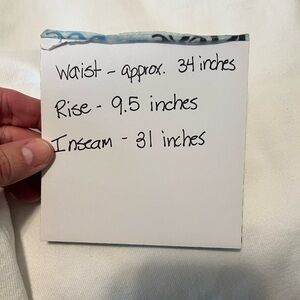 Waist - approx. 34 inches
Rise - 9.5 inches
Inseam - 31 inches